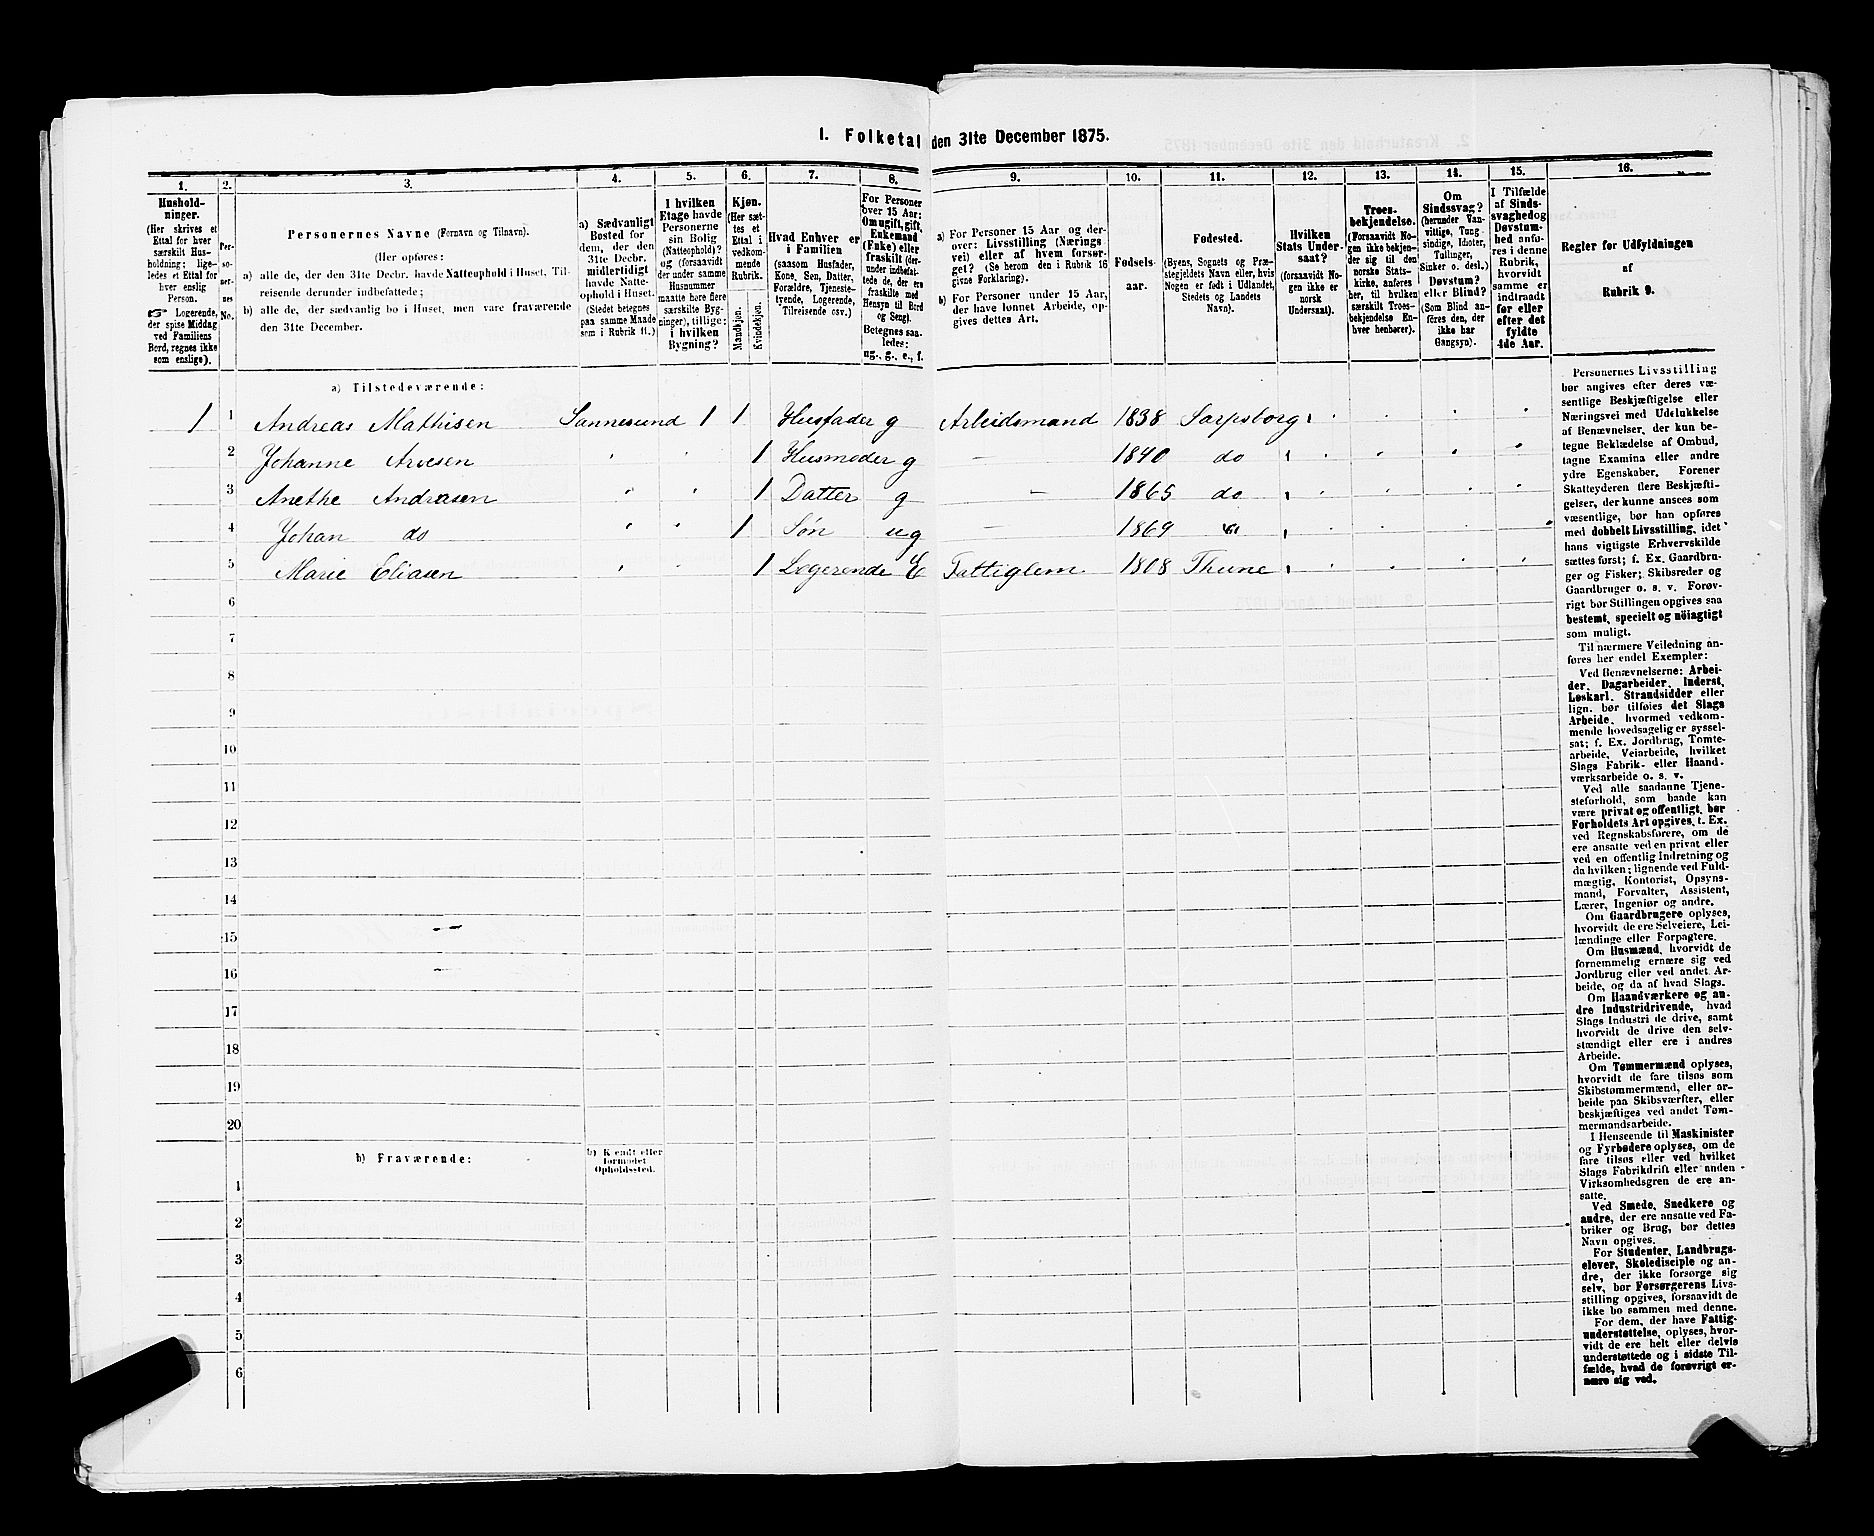 1. Folketal den 31te December 1875.
1. 2. 3. 4. 5. 6. 7. 8. 9. 10. 11. 12. 13. 14. 15. 16.
Hushold-
ninger.
(Her skrives et
Ettal for hver
særskilt Hus-
holdning; lige-
ledes et Ettal for
hver enslig
Person.
☞ Logerende,
der spise Middag
ved Familiens
Bord, regnes ikke
som enslige).
Per-
so-
ner-
nes
No.
Personernes Navne (Fornavn og Tilnavn).
(Her opføres:
a) alle de, der den 31te Decbr. havde Natteophold i Huset, Til-
reisende derunder indbefattede;
b) alle de, der sædvanlig bo i Huset, men vare fraværende
den 31te December.
a) Sædvanligt
Bosted for
dem, der den
31te Decbr.
midlertidigt
havde Natte-
ophold i Huset.
(Stedet betegnes
paa samme Maade
som i Rubrik 11.)
I hvilken
Etage havde
Personerne
sin Bolig
(Natteophold)?
og (forsaavidt
der under samme
Husnummer
maatte høre flere
særskilte Byg-
ninger), tillige:
i hvilken
Bygning?
Kjøn.
(Her sæt-
tes et
Ettal i
vedkom-
mende
Rubrik.
Mandkjøn.
Kvindekjøn.
Hvad Enhver er
i Familien
(saasom Husfader,
Kone, Søn, Datter,
Forældre, Tjeneste-
tyende, Logerende,
Tilreisende osv.)
For Personer
over 15 Aar:
Om ugift, gift,
Enkemand
(Enke) eller
fraskilt (der-
under indbefat-
tede de, der ere
fraskilte med
Hensyn til Bord
og Seng).
Betegnes saa-
ledes:
ug., g., e., f.
a) For Personer 15 Aar og der-
over: Livsstilling (Nærings-
vei) eller af hvem forsør-
get? (Se herom den i Rubrik 16
givne Forklaring).
b) For Personer under 15 Aar,
der have lønnet Arbeide, op-
gives dettes Art.
Fødsels-
aar.
Fødested.
(Byens, Sognets og Præ-
stegjeldets Navn eller, hvis
Nogen er født i Udlandet,
Stedets og Landets
Navn).
Hvilken
Stats Under-
saat?
(forsaavidt No-
gen ikke er
norsk
Undersaat).
Troes-
bekjendelse.
(Forsaavidt No-
gen ikke bekjen-
der sig til den
norske Stats-
kirke, anføres
her, til hvilken
særskilt Troes-
bekjendelse En-
hver henhører).
Om
Sindssvag?
(herunder Van-
vittige, Tung-
sindige, Idioter,
Tullinger,
Sinker o. desl.)
Døvstum?
eller Blind?
(Som Blind an-
føres den, der
ikke har
Gangsyn).
I Tilfælde
af Sinds-
svaghed og
Døvstum-
hed anfø-
res i denne
Rubrik,
hvorvidt
samme er
indtraadt
før eller
efter det
fyldte
4de Aar.
Regler for Udfyldningen
af
Rubrik 9.
a) Tilstedeværende:
1 1 Andreas Mathisen Sannesund 1 1 Husfader g Arbeidsmand 1838 Sarpsborg
2 Johanne Arvesen 1 Husmoder g — 1840 do
3 Anethe Andreasen 1 Datter g — 1865 do
4 Johan do 1 Søn ug — 1869
5 Marie Eliasen 1 Logerende E Fattiglem 1808 Thune
6
7
8
9
10
11
12
13
14
15
16
17
18
19
20
b) Fraværende:
b) Kjendt eller
formodet
Opholdssted.
1
2
3
4
5
6
Personernes Livsstilling
bør angives efter deres væ-
sentlige Beskjæftigelse eller
Næringsvei med Udelukkelse
af Benævnelser, der kun be-
tegne Beklædelse af Ombud,
tagne Examina eller andre
ydre Egenskaber. Forener
Skatteyderen flere Beskjæfti-
gelser, der kunne ansees som
væsentlige, bør han opføres
med dobbelt Livsstilling, idet
hans vigtigste Erhvervskilde
sættes først; f. Ex. Gaardbru-
ger og Fisker; Skibsreder og
Gaardbruger o. s. v. Forøv-
rigt bør Stillingen opgives saa
bestemt, specielt og nøiagtigt
som muligt.
Til nærmere Veiledning an-
føres her endel Exempler:
Ved Benævnelserne: Arbei-
der, Dagarbeider, Inderst,
Løskarl, Strandsidder eller
lign. bør tilføies det Slags
Arbeide, hvormed vedkom-
mende hovedsagelig er syssel-
sat; f. Ex. Jordbrug, Tomte-
arbeide, Veiarbeide, hvilket
Slags Fabrik- eller Haand-
værksarbeide o. s. v.
Ved alle saadanne Tjene-
steforhold, som baade kan
være privat og offentligt, bør
Forholdets Art opgives, t. Ex.
ved Regnskabsførere, om de
ere ansatte ved en privat eller
ved en offentlig Indretning og
da hvilken; lignende ved Fuld-
mægtig, Kontorist, Opsyns-
mand, Forvalter, Assistent,
Lærer, Ingeniør og andre.
Om Gaardbrugere oplyses,
hvorvidt de ere Selveiere, Lei-
lændinge eller Forpagtere.
Om Husmænd, hvorvidt de
fornemmelig ernære sig ved
Jordbrug eller ved andet Ar-
beide, og da af hvad Slags.
Om Haandværkere og an-
dre Industridrivende, hvad
Slags Industri de drive, samt
hvorvidt de drive den selv-
stændigt eller ere i andres
Arbeide.
Om Tømmermænd oplyses,
hvorvidt de fare tilsøs som
Skibstømmermænd, eller ar-
beide paa Skibsværfter, eller
beskjæftiges ved andet Tøm-
mermandsarbeide.
I Henseende til Maskinister
og Fyrbødere oplyses, om de
fare tilsøs eller ved hvilket
Slags Fabrikdrift eller anden
Virksomhedsgren de ere an-
satte.
Ved Smede, Snedkere og
andre, der ere ansatte ved Fa-
briker og Brug, bør dettes
Navn opgives.
For Studenter, Landbrugs-
elever, Skoledisciple og an-
dre, der ikke forsørge sig
selv, bør Forsørgerens Livs-
stilling opgives, forsaavidt de
ikke bo sammen med denne.
For dem, der have Fattig-
understøttelse, oplyses, hvor-
vidt de ere helt eller delvis
understøttede og i sidste Til-
fælde, hvad de forøvrigt er-
nære sig ved.